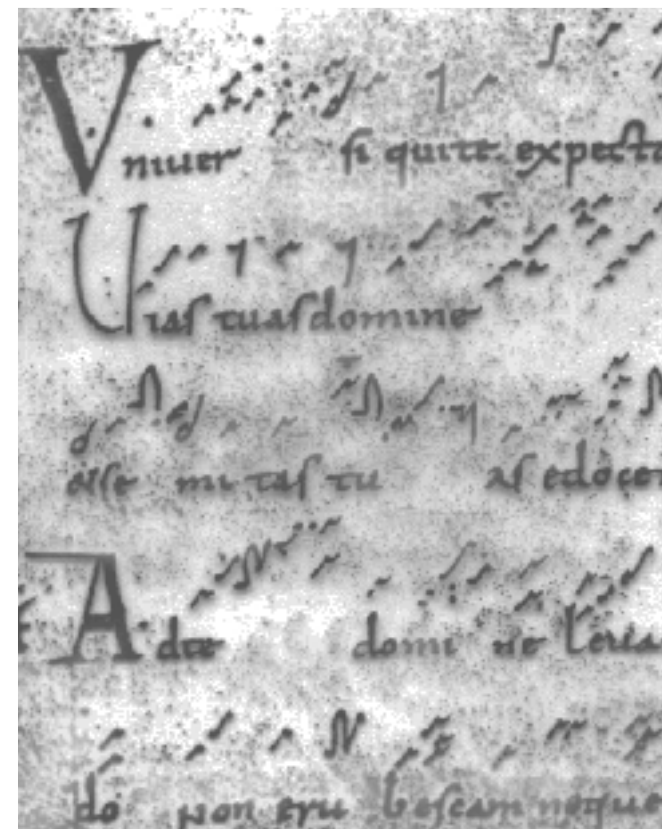 Vniuer si qui te expecta
Uias tuas domine
mi tas tu as edoce
Ad te domi ne leua
do non eru bescam neque